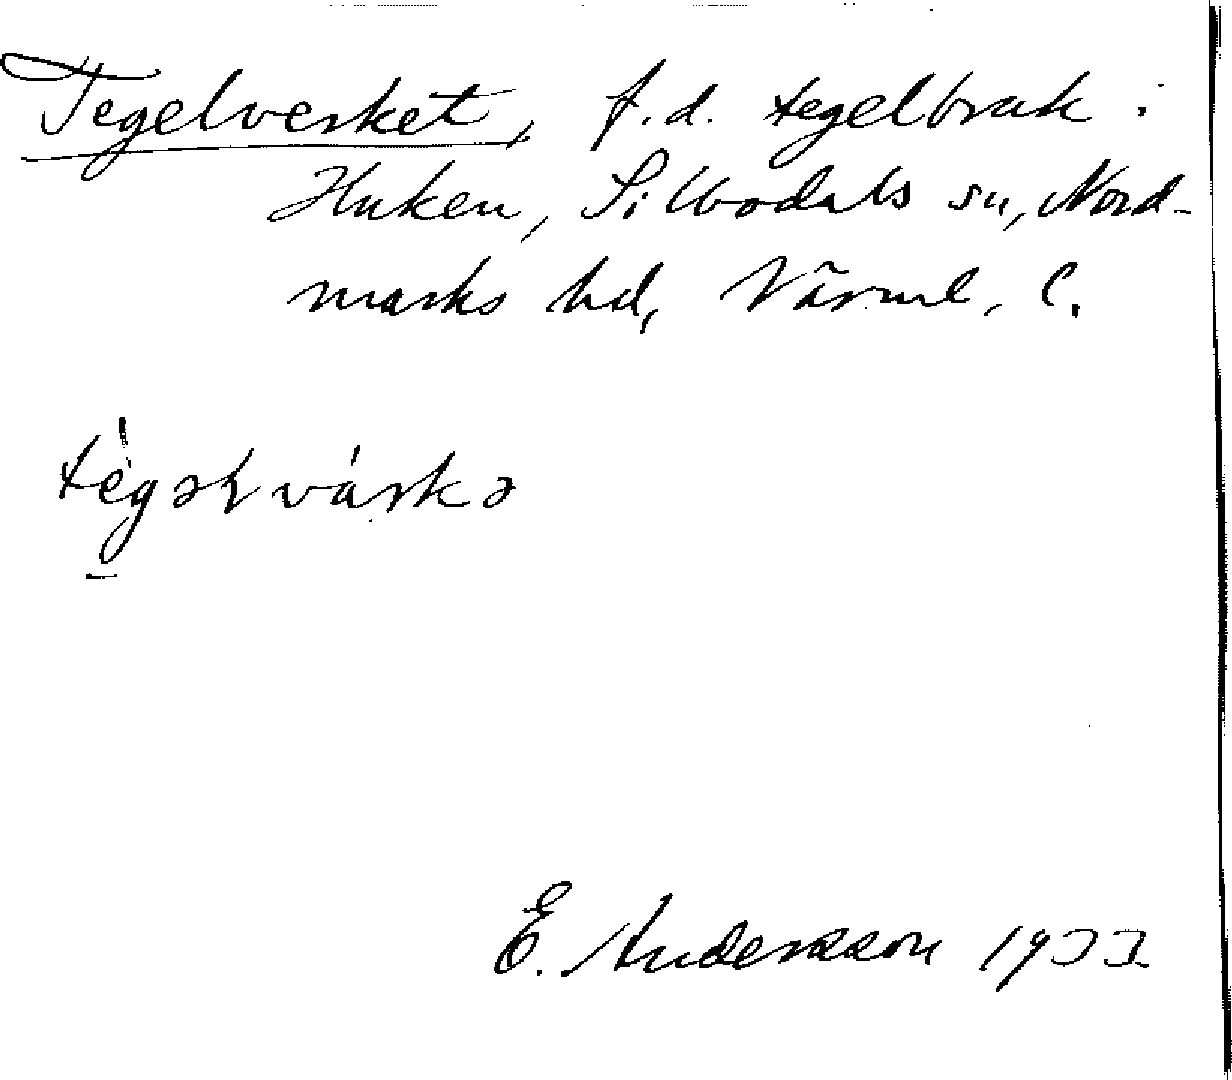 Tegelverket, f.d. tegelbruk i
Huken, Silbodals sn, Nord-
marks hd, Värml. l.
tégəɫvárkə
E. Andersson